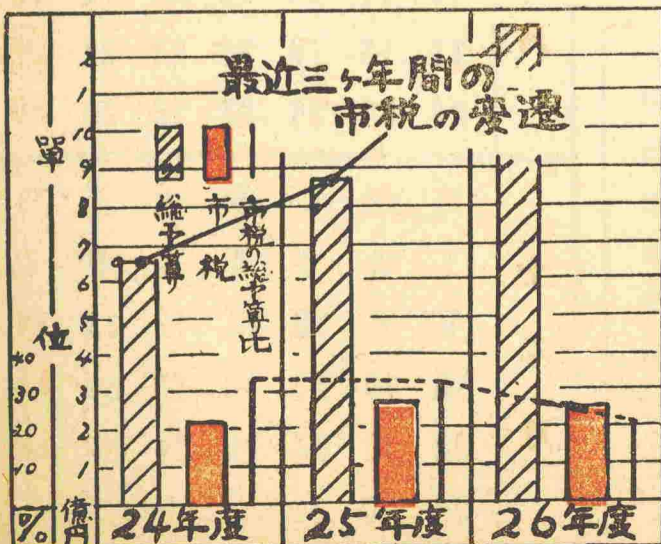 最近三ヶ年間の
市税の変遷
單位
総予算
市税
市税の総予算比
2
1
10
9
8
7
6
5
4
3
2
1
億円
40
30
20
10
%
24年度
25年度
26年度